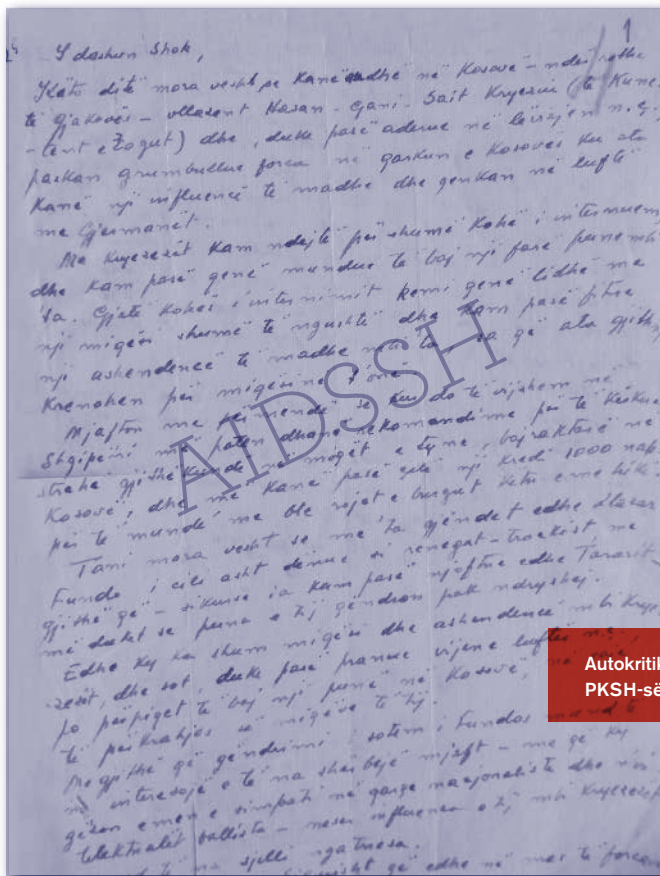 1
I dashun Shok,
Këto ditë mora vesht se kanë ardhë në Kosovë – ndër rrethe
të Gjakovës – vllaznt Hasan - Gani - Sait Kryeziu (të Kune-
-tent e Zogut) dhe, duke pasë aderue në lëvizjen n.ç.
paskan grumbullue forca në qarkun e Kosovës ku ata
kanë një influencë të madhe dhe qenkan në luftë
me Gjermanët.
Me Kryezezët kam ndejtë për shumë kohë i internuem
dhe kam pasë qenë mundue të baj një farë pune mbi
ta. Gjatë kohës s'internimit kemi qenë lidhë me
një miqësi shumë të ngushtë dhe kam pasë fitue
një ashendencë të madhe mbi ta, sa që ata gjithë
krenohen për miqësinë t'onë.
Mjafton me përmendë se kur do të vijshem në
Shqipëni më paten dhanë rekomandime për të kërkue
strehë gjithëkunde në miqët e tyne, bajraktarë në
Kosovë, dhe më kanë pasë çelë një kredi 1000 nap.
për të mundë me ble rojet e burgut
Tani mora vesht se me ta gjendet edhe Llazar
Fundo i cili asht denue si renegat-trockist me
gjithë që – sikurse ia kam pasë njoftue edhe
më duket se puna e tij qëndron pak ndryshej.
Edhe ky ka shum miqësi dhe ashendencë mbi Krye-
zezët, dhe sot, duke pasë pranue vijënë luftës n.ç.,
po përpiqet të baj një punë në Kosovë,
të përkrahjes së miqëve të tij.
Megjithë që qëndrimi i sotëm i Fundos mund të
na interesojë e të na shërbejë mjaft – me që ky
gëzon emën e simpati në qarqe nacjonaliste dhe
telektualët ballista – nesër influenca e tij mbi Kryezezët
të na sjelli ngatresa.
që edhe në mes të forcave
AIDSSH
Autokritik
PKSH-së